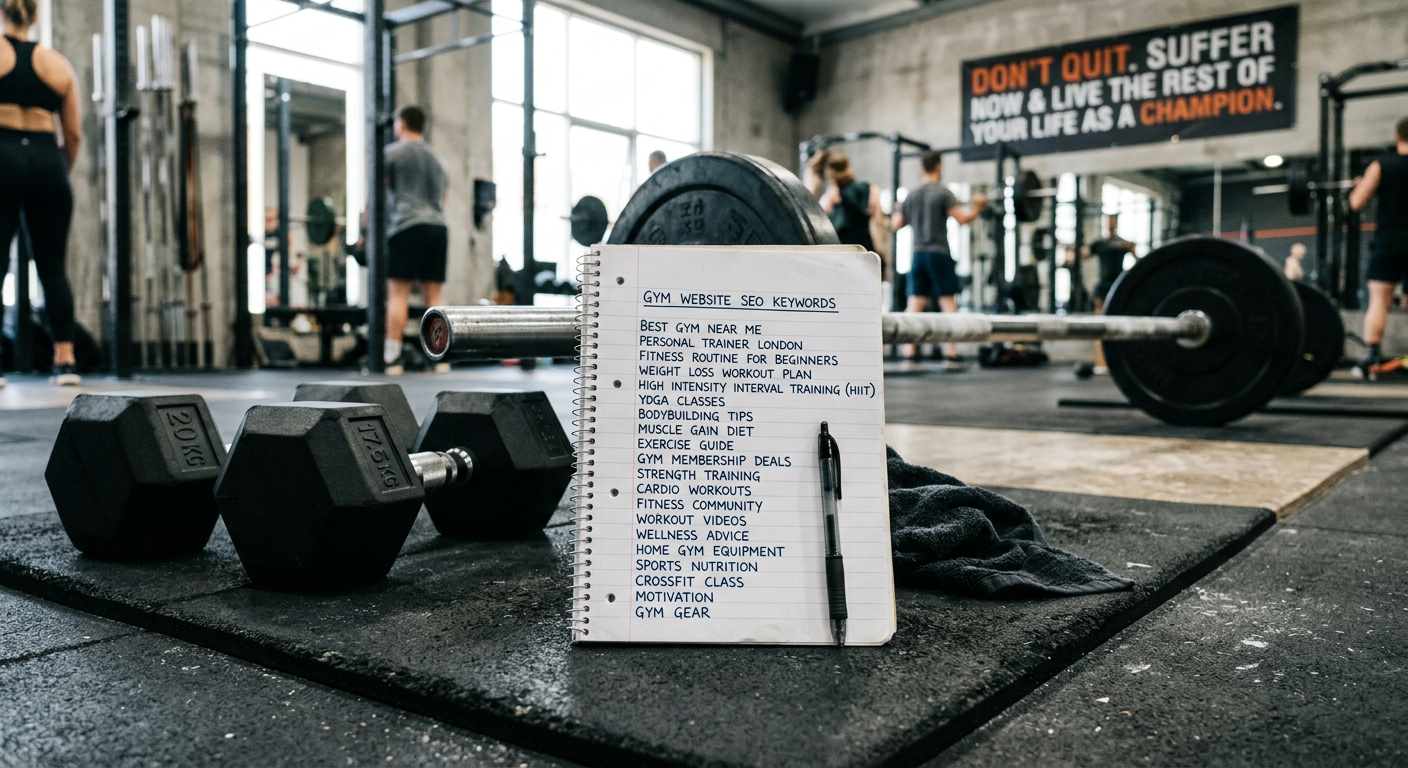 DON'T QUIT. SUFFER
NOW & LIVE THE REST OF
YOUR LIFE AS A CHAMPION.
GYM WEBSITE SEO KEYWORDS
BEST GYM NEAR ME
PERSONAL TRAINER LONDON
FITNESS ROUTINE FOR BEGINNERS
WEIGHT LOSS WORKOUT PLAN
HIGH INTENSITY INTERVAL TRAINING (HIIT)
YOGA CLASSES
BODYBUILDING TIPS
MUSCLE GAIN DIET
EXERCISE GUIDE
GYM MEMBERSHIP DEALS
STRENGTH TRAINING
CARDIO WORKOUTS
FITNESS COMMUNITY
WORKOUT VIDEOS
WELLNESS ADVICE
HOME GYM EQUIPMENT
SPORTS NUTRITION
CROSSFIT CLASS
MOTIVATION
GYM GEAR
20KG
17.5KG